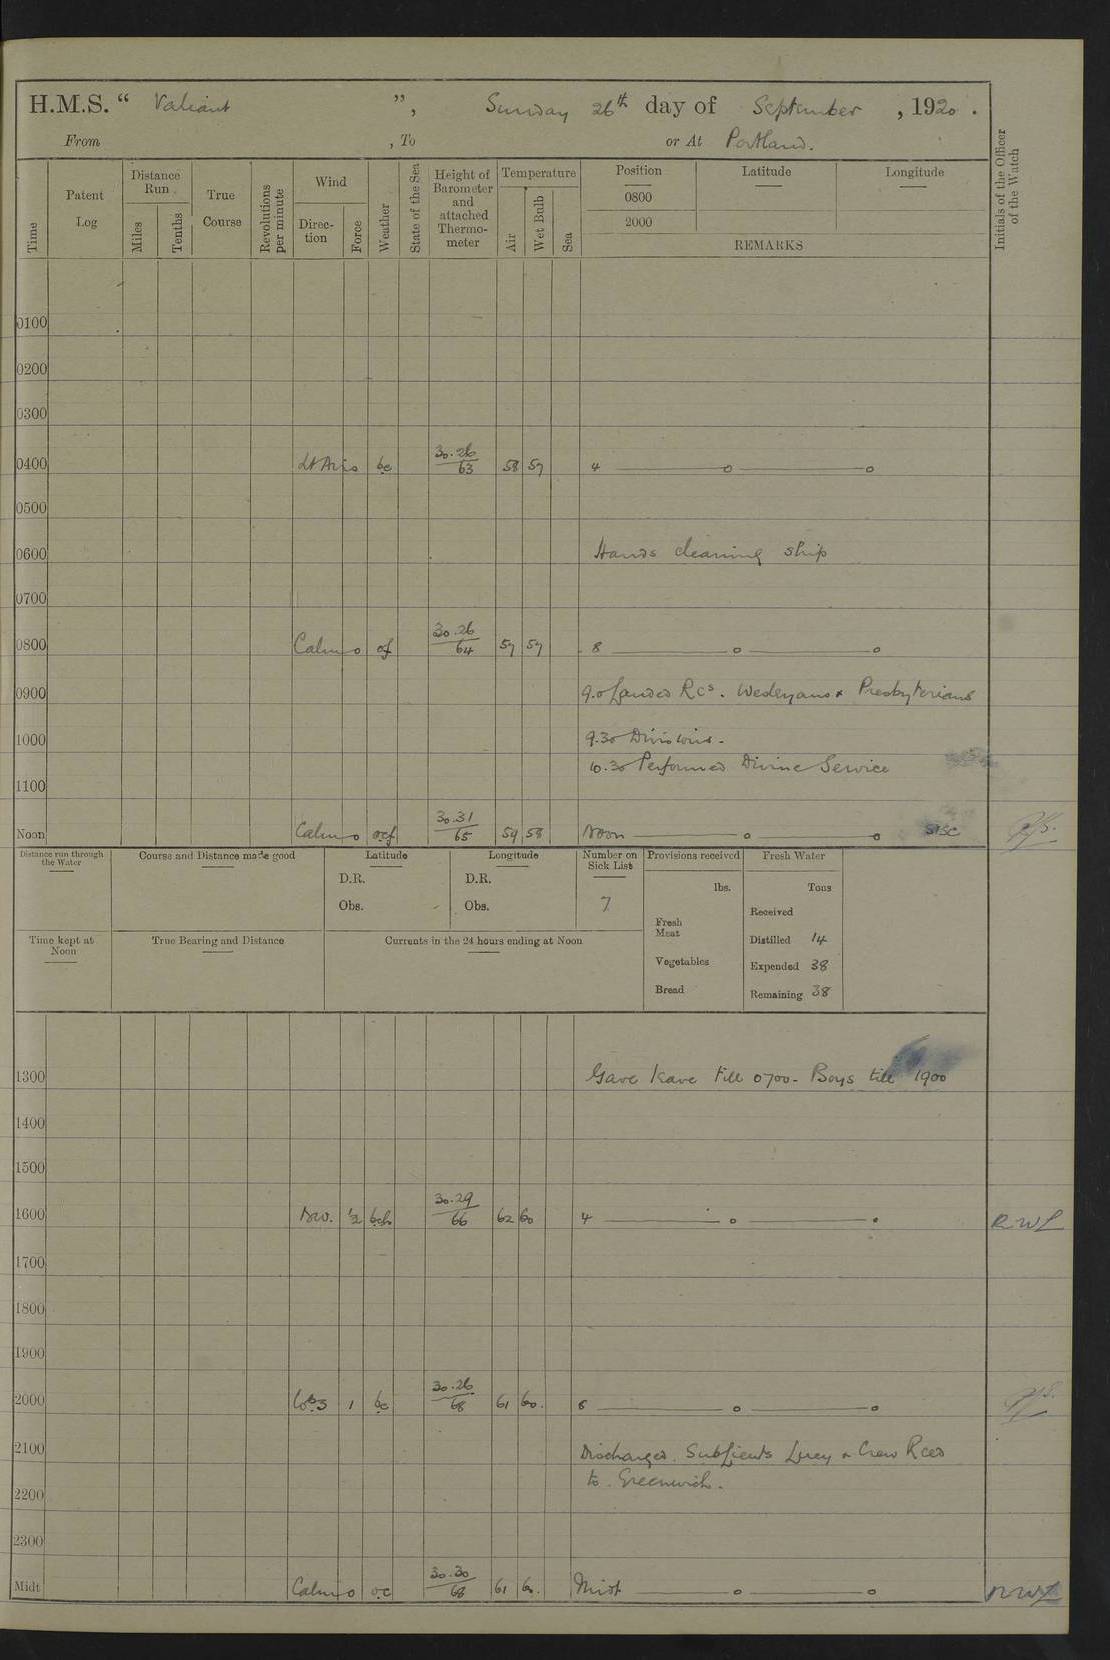 H.M.S. " Valiant ", Sunday 26th day of September , 1920 .
From , To or At Portland.
Time
Patent Log
Distance Run
Miles
Tenths
True Course
Revolutions per minute
Wind
Direc-tion
Force
Weather
State of the Sea
Height of Barometer and attached Thermo-meter
Temperature
Air
Wet Bulb
Sea
Position
0800
2000
Latitude
Longitude
REMARKS
Initials of the Officer of the Watch
0100
0200
0300
0400 Lt Airs bc 30.26/63 58 57 4 —o—o
0500
0600 Hands cleaning ship
0700
0800 Calm o of 30.26/64 57 57 8 —o—o
0900 9.0 Landed R.Cs. Wesleyans & Presbyterians
1000 9.30 Divisions -
10.30 Performed Divine Service
1100
Noon Calm o ocf 30.31/65 59 58 Noon —o—o
Distance run through the Water
Course and Distance made good
Latitude
D.R.
Obs.
Longitude
D.R.
Obs.
Number on Sick List
7
Provisions received
lbs.
Fresh Meat
Vegetables
Bread
Fresh Water
Tons
Received
Distilled 14
Expended 38
Remaining 38
Time kept at Noon
True Bearing and Distance
Currents in the 24 hours ending at Noon
1300 Gave leave till 0700 - Boys till 1900
1400
1500
1600 SW. ½ 30.29/66 62 60 4 —o—o RWL
1700
1800
1900
2000 1 bc 30.26/68 61 60. 8 —o—o
2100 Discharged SubLieuts Lucy &
to Greenwich.
2200
2300
Midt Calm o oc 30.30/68 61 60. Midt —o—o